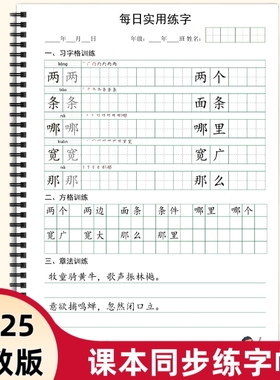 每日实用练字
年 月 日 年级: 班 姓名:
一、习字格训练
liǎng
两 两 两 个
tiáo
条 条 面 条
nǎ
哪 哪 哪 里
kuān
宽 宽 宽 广
nà
那 那 那 么
二、方格训练
两个 两边 面条 条件 哪里 哪个
宽广 宽大 那么 那里
三、章法训练
牧童骑黄牛，歌声振林樾。
意欲捕鸣蝉，忽然闭口立。
25
教版
课本同步练字